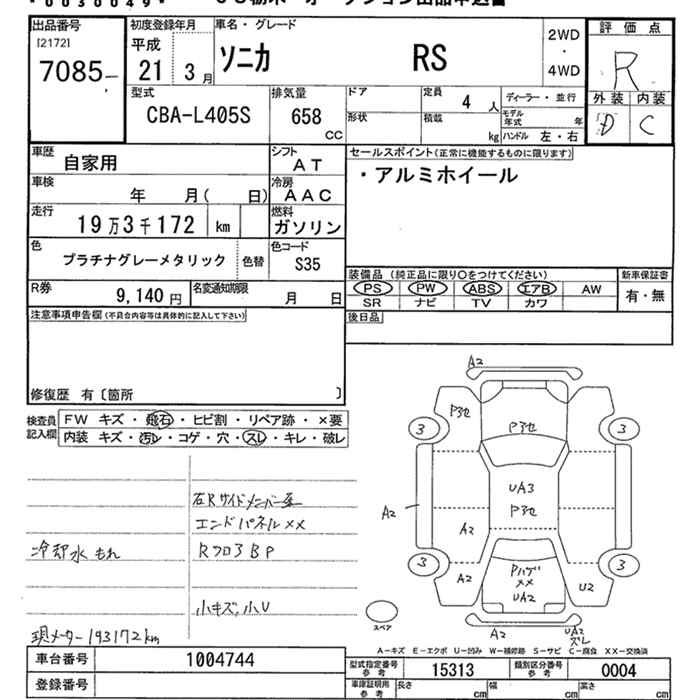 出品番号
[2172]
7085
初度登録年月
平成
21 3月
車名・グレード
ソニカ RS
2WD
・
4WD
評価点
R
外装 内装
D C
型式
CBA-L405S
排気量
658
CC
ドア
形状
定員
4 人
積載
kg
ディーラー・並行
モデル年式 年
ハンドル 左・右
車歴
自家用
シフト
AT
車検
年 月( 日)
冷房
AAC
走行
19万3千172 km
燃料
ガソリン
色
プラチナグレーメタリック
色替
色コード
S35
R券
9,140円
名変通知期限
月 日
セールスポイント(正常に機能するものに限ります)
・アルミホイール
装備品(純正品に限り○をつけてください)
PS PW ABS エアB AW
SR ナビ TV カワ
新車保証書
有・無
後日品
注意事項申告欄(不具合内容等は具体的に記入して下さい)
修復歴 有〔箇所 〕
検査員
記入欄
FW キズ・飛石・ヒビ割・リペア跡・×要
内装 キズ・汚レ・コゲ・穴・スレ・キレ・破レ
エンドパネル××
冷却水もれ
RフロアBP
小キズ、小U
現メーター193172km
A2
P3セ
P3セ
3
3
UA3
P3セ
A2
A2
3
3
A2
Pハゲ
××
UA2
U2
A2
UA2
スペア
A-キズ E-エクボ U-凹み W-補修跡 S-サビ C-腐食 XX-交換済
車台番号
1004744
登録番号
型式指定番号
参考
15313
類別区分番号
参考
0004
車庫証明用
参考
長さ cm
幅 cm
高さ cm